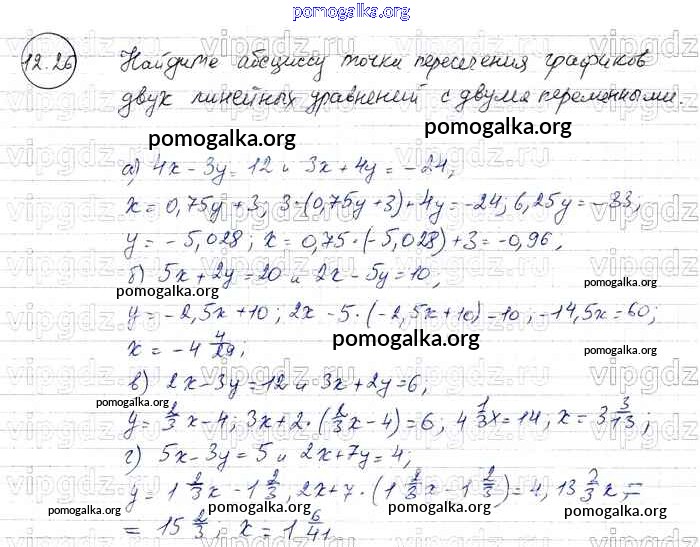 pomogalka.org
12.26 Найдите абсциссу точки пересечения графиков
двух линейных уравнений с двумя переменными.
pomogalka.org pomogalka.org
а) 4x - 3y = 12 и 3x + 4y = -24,
x = 0,75y + 3; 3·(0,75y + 3) + 4y = -24; 6,25y = -33;
y = -5,028; x = 0,75·(-5,028) + 3 = -0,96;
б) 5x + 2y = 20 и 2x - 5y = 10,
pomogalka.org pomogalka.org
y = -2,5x + 10; 2x - 5·(-2,5x + 10) - 10; -14,5x = 60;
x = -4 4/29;
pomogalka.org pomogalka.org
в) 2x - 3y = 12 и 3x + 2y = 6,
pomogalka.org pomogalka.org
y = 2/3 x - 4; 3x + 2·(2/3 x - 4) = 6; 4 1/3 x = 14, x = 3 3/13;
г) 5x - 3y = 5 и 2x + 7y = 4;
pomogalka.org
y = 1 2/3 x - 1 2/3, 2x + 7·(1 2/3 x - 1 2/3) = 4, 13 2/3 x =
pomogalka.org pomogalka.org
= 15 2/3; x = 1 6/41.